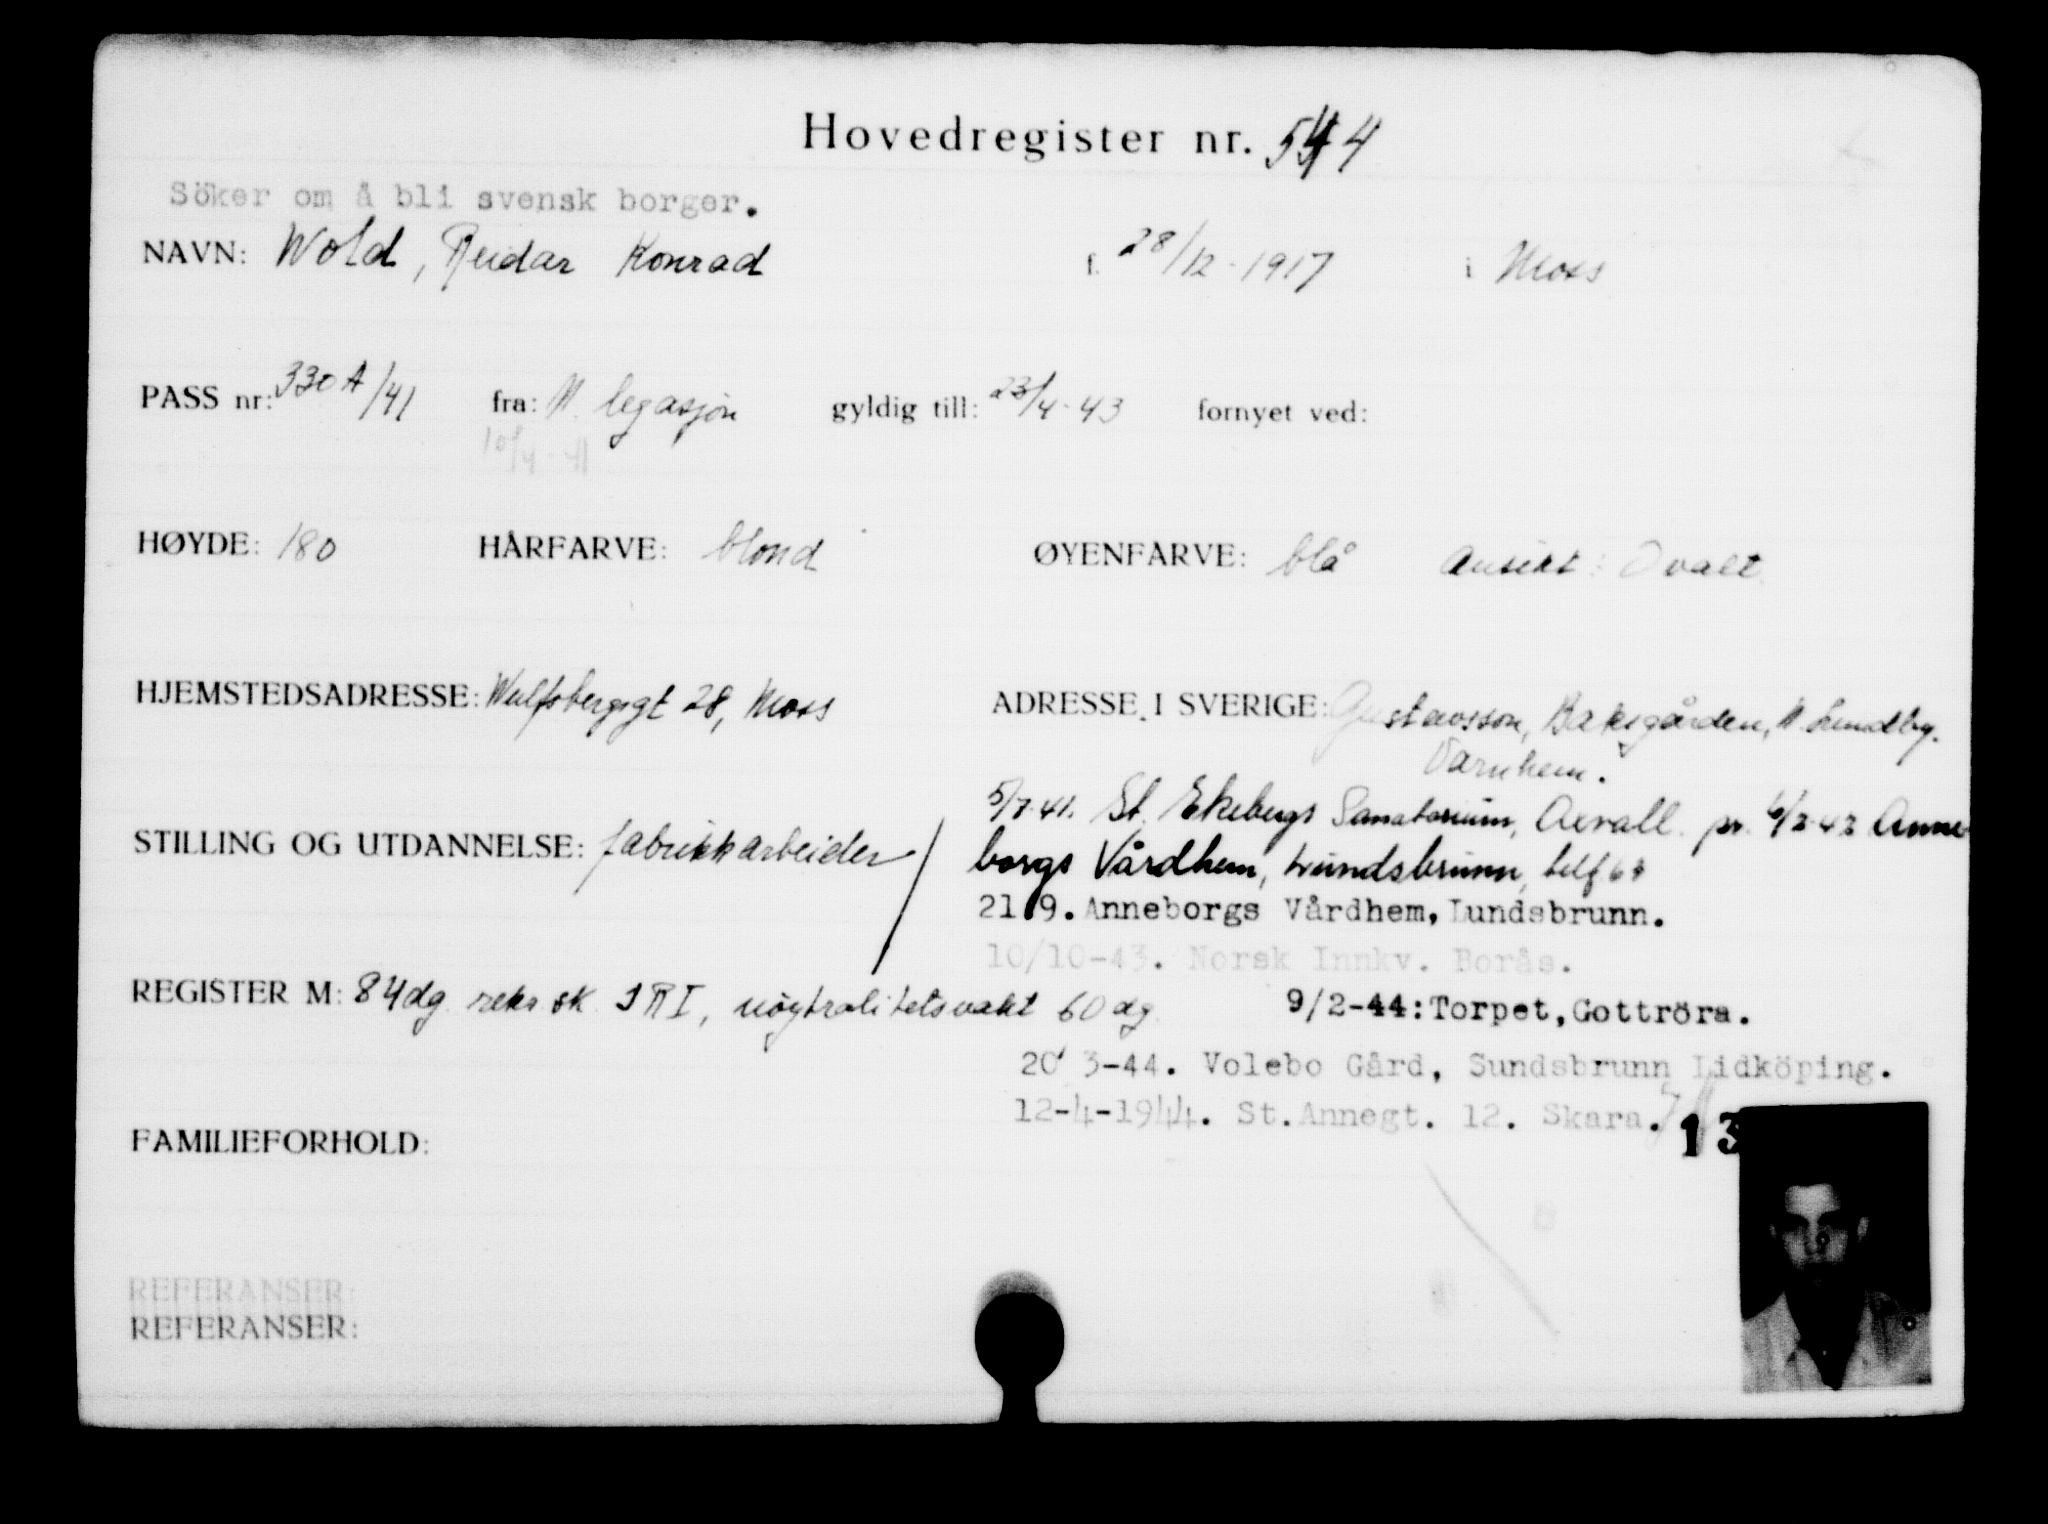 Hovedregister nr. 544
Söker om å bli svensk borger.
NAVN: Wold, Reidar Konrad f. 28/12-1917 i Moss
PASS nr: 330 A/41 fra: N. legasjon gyldig till: 23/4-43 fornyet ved:
10/4-41
HØYDE: 180 HÅRFARVE: blond ØYENFARVE: blå Ansikt: Ovalt
HJEMSTEDSADRESSE: Wulfsbergsgt 28, Moss ADRESSE I SVERIGE: Gustavsson, Baksgården, N. Lundby.
Varnhem.
5/7-41. St. Ekebergs Sanatorium, Axvall. pr. 6/2-42 Anne-
STILLING OG UTDANNELSE: fabrikkarbeider / borgs Vårdhem, Lundsbrunn, telf 68
21/9. Anneborgs Vårdhem, Lundsbrunn.
10/10-43. Norsk Innkv. Borås.
REGISTER M: 84 dg. rekr sk. IR I, nøytralitetsvakt 60 dg. 9/2-44: Torpet, Gottröra.
20/3-44. Volebo Gård, Sundsbrunn Lidköping.
12-4-1944. St. Annegt. 12. Skara.
FAMILIEFORHOLD: 13
REFERANSER:
REFERANSER: